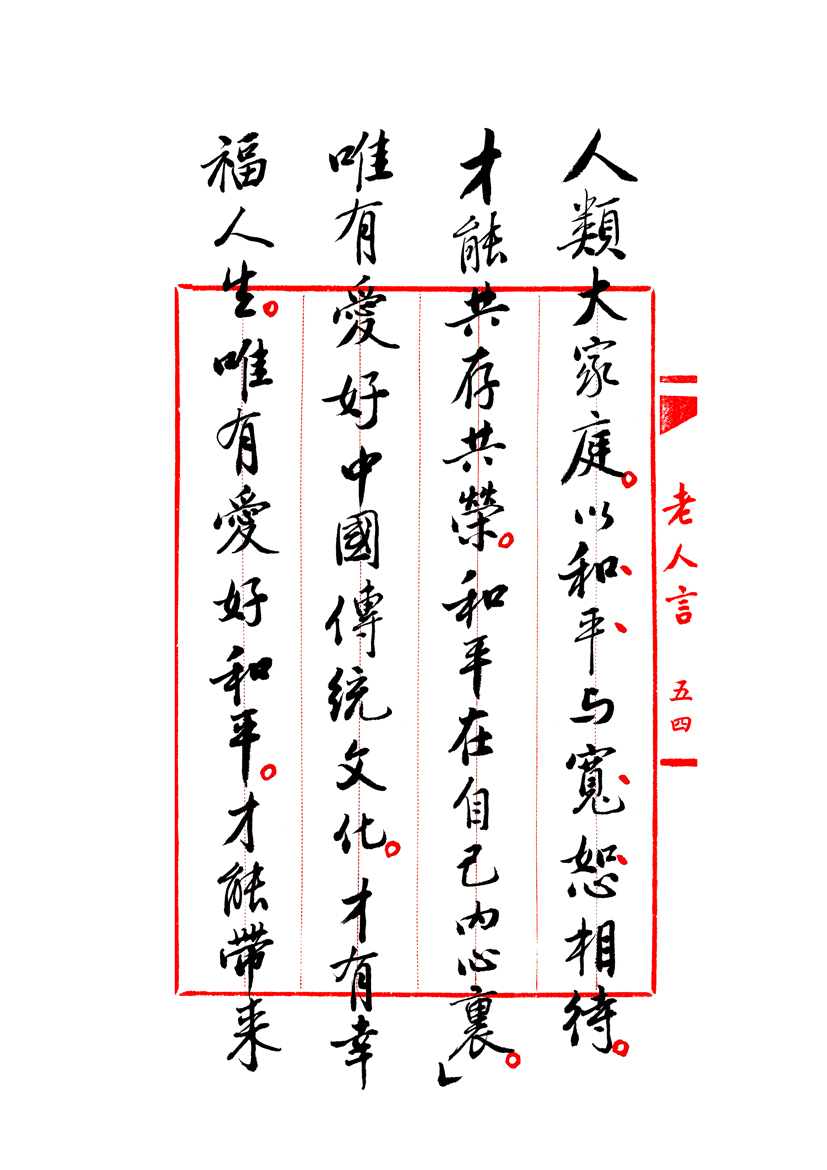 人類大家庭。以和平与寬恕相待。
才能共存共榮。和平在自己内心裏。」
唯有愛好中國傳統文化。才有幸
福人生。唯有愛好和平。才能帶来
老人言 五四